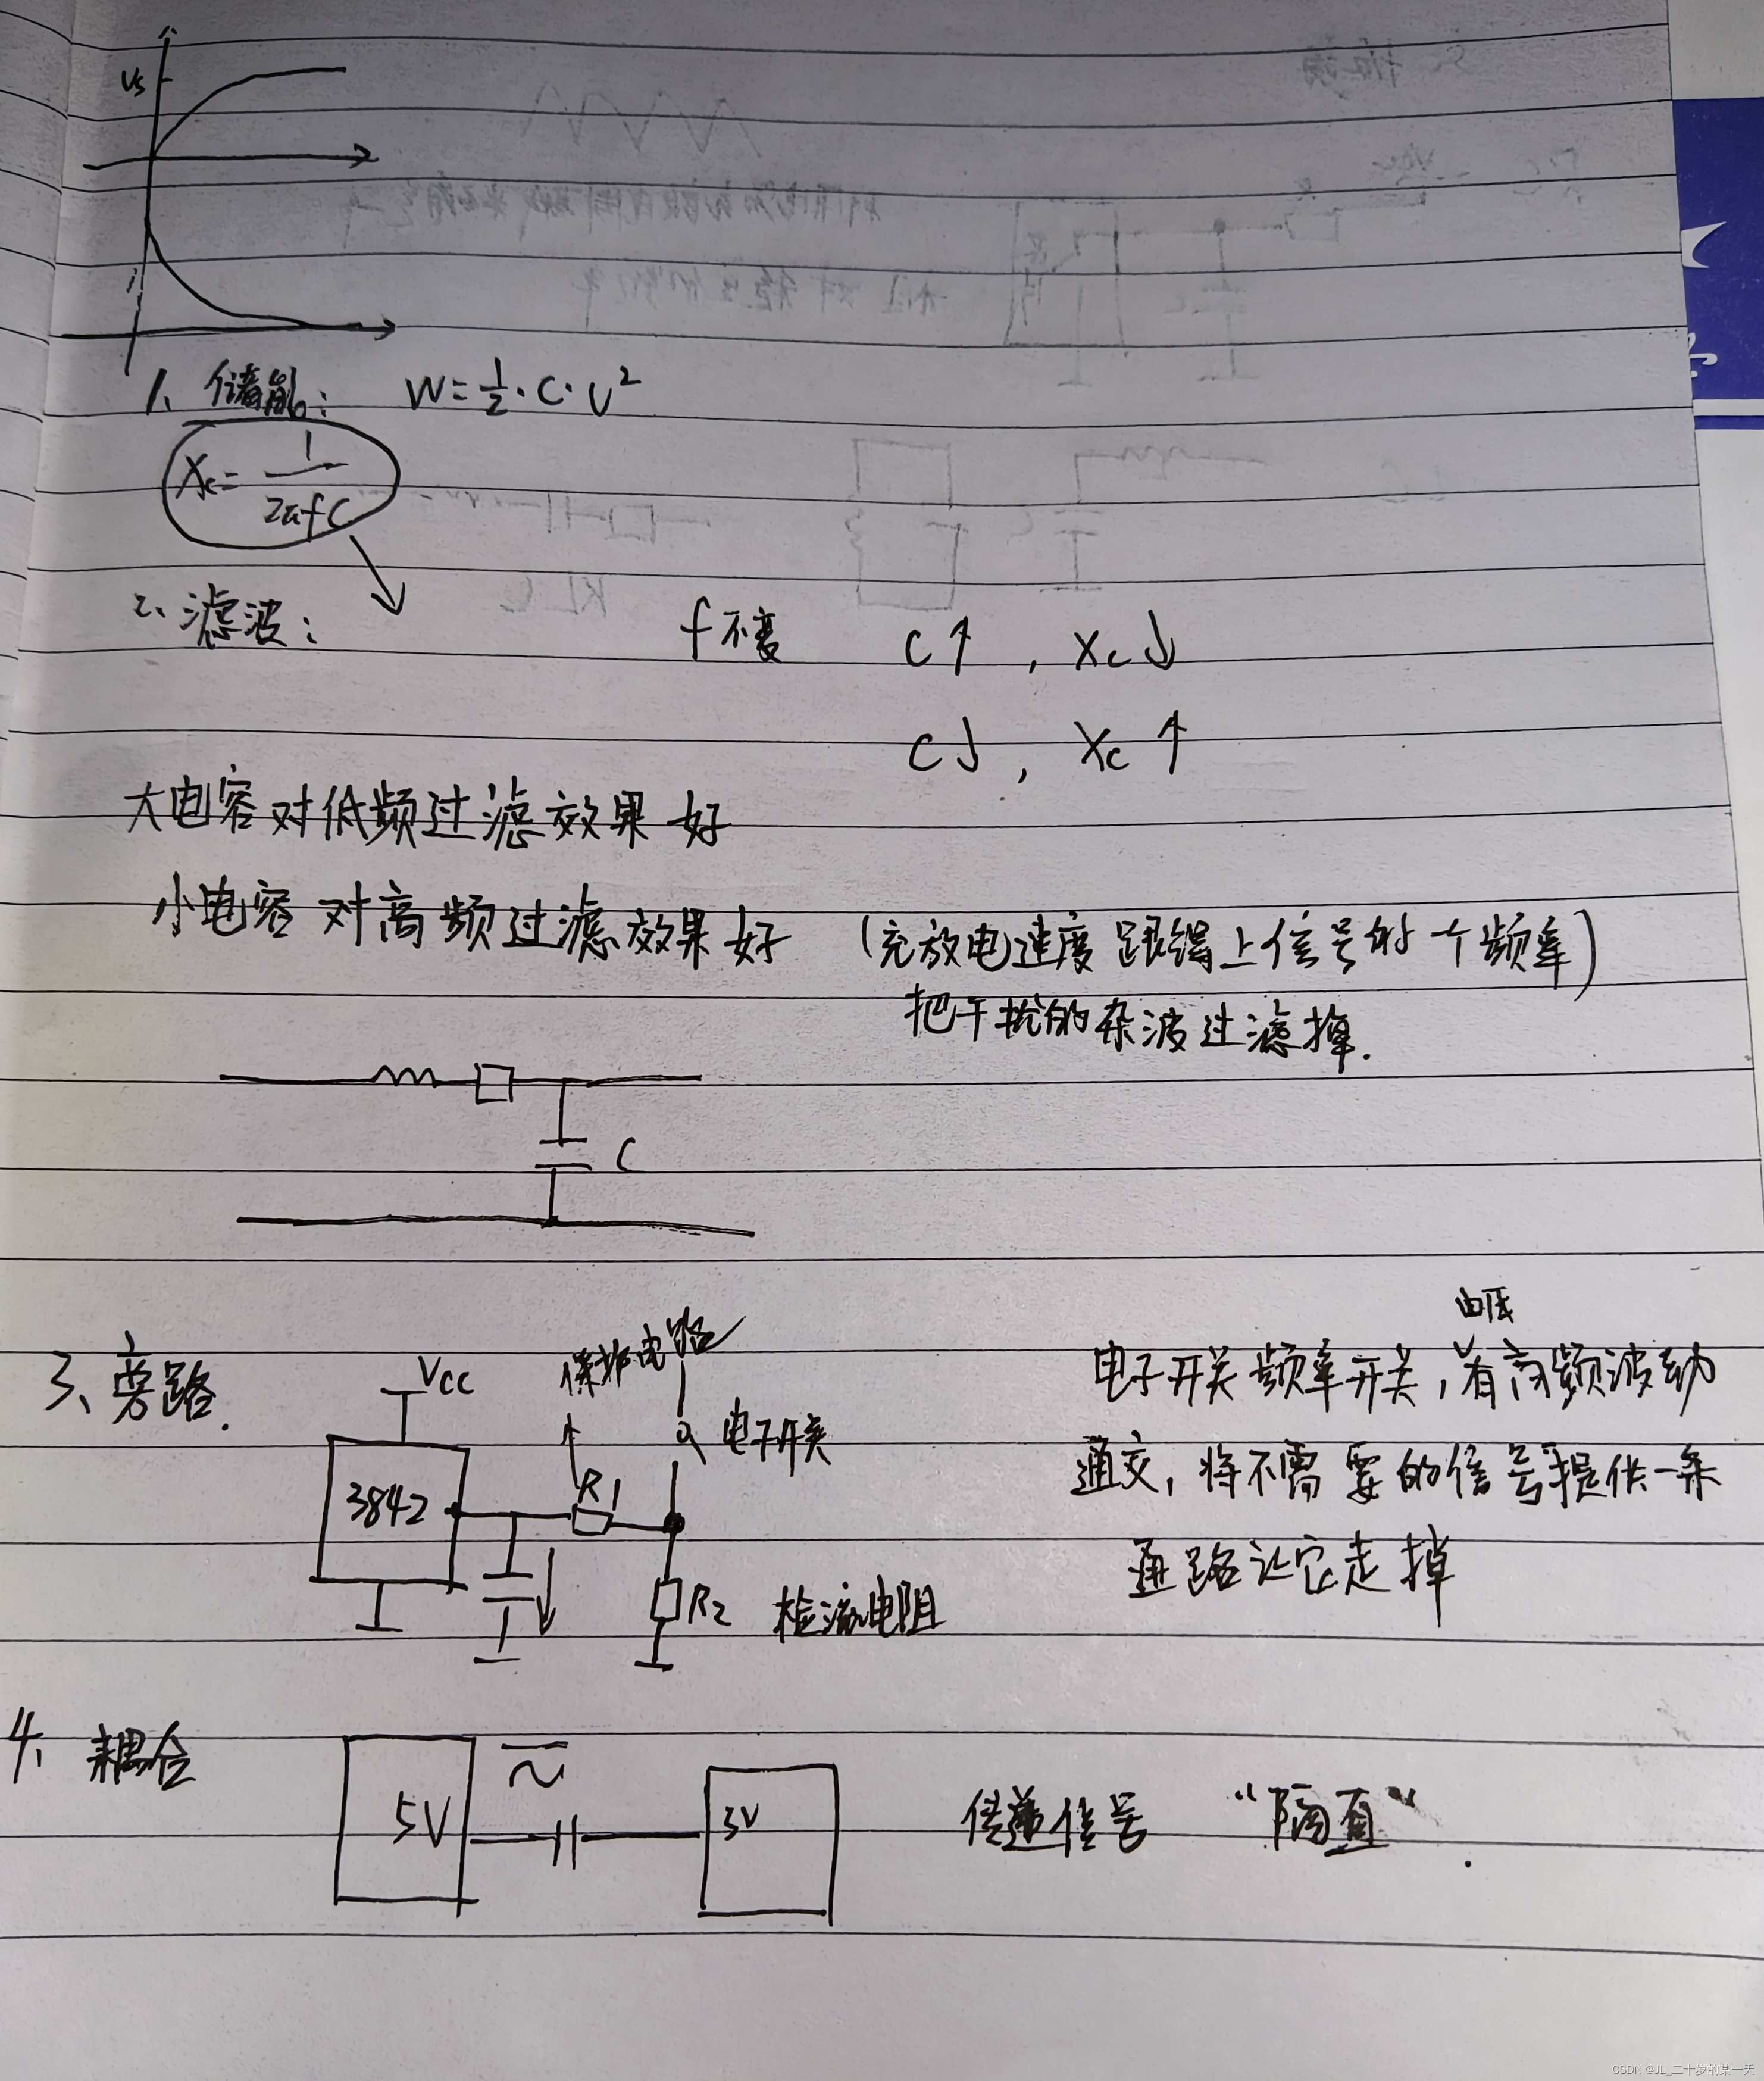 Vs
1、储能： W=½·C·U²
Xc= 1/2πfC
2、滤波： f不变 C↑，Xc↓
C↓，Xc↑
大电容对低频过滤效果好
小电容对高频过滤效果好 （充放电速度跟得上信号的一个频率）
把干扰的杂波过滤掉.
C
3、旁路.
Vcc
保护电路
3842
R1
电子开关
R2 检流电阻
电子开关频率开关，有高频波动
通交，将不需要的信号提供一条
通路让它走掉
4、耦合
5V
3V
传递信号 “隔直”.
CSDN @JL_二十岁的某一天